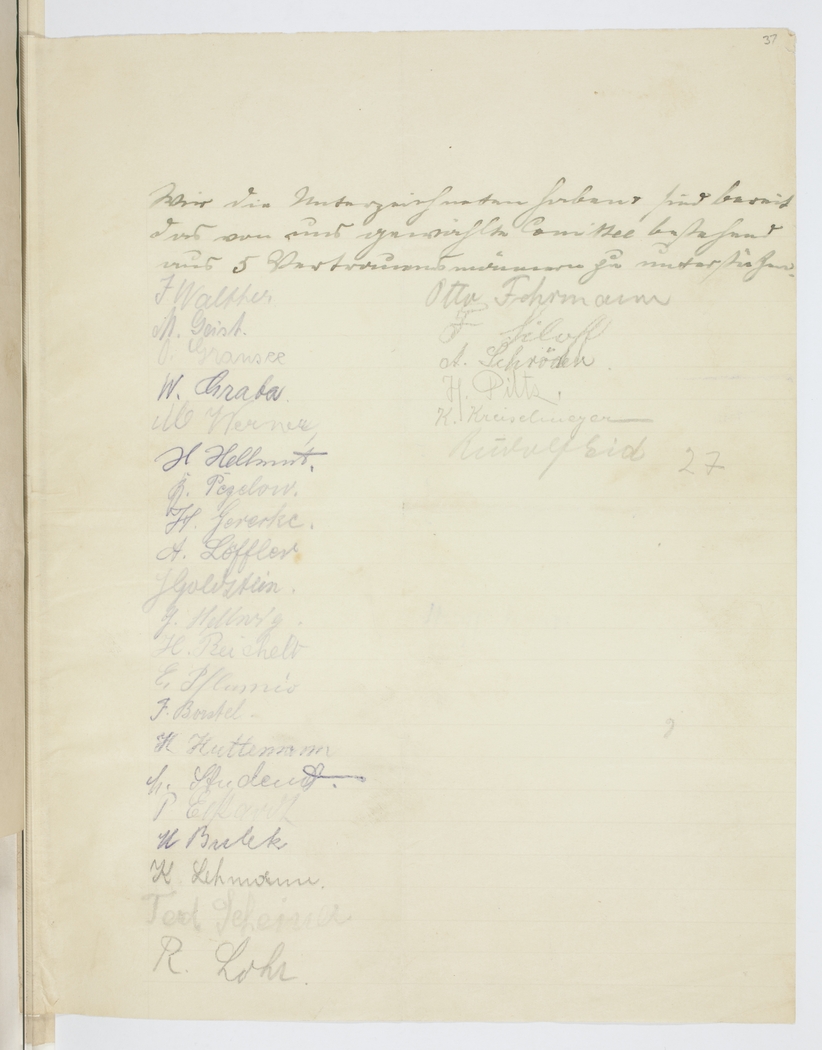 37
Wir die Unterzeichneten haben, sind bereit
das von uns gewählte Comittee bestehend
aus 5 Vertrauensmännern zu unterstützen.
F Walther
M. Geist.
Gransee
W. Graba.
M Werner
H Hellmut.
Pegelow.
H. Gererke.
A. Löffler
J Goldstein.
G. Hellwig.
H. Reichelt
E. Pflumio
F. Boutel.
H Huttemann
Student.
P
H Bulek
K. Lehmann.
R. Lohr.
Otto Fehrmann
F
A. Schröder.
H. Piltz.
K. Kreiselmeyer
Rudolf Eid
27